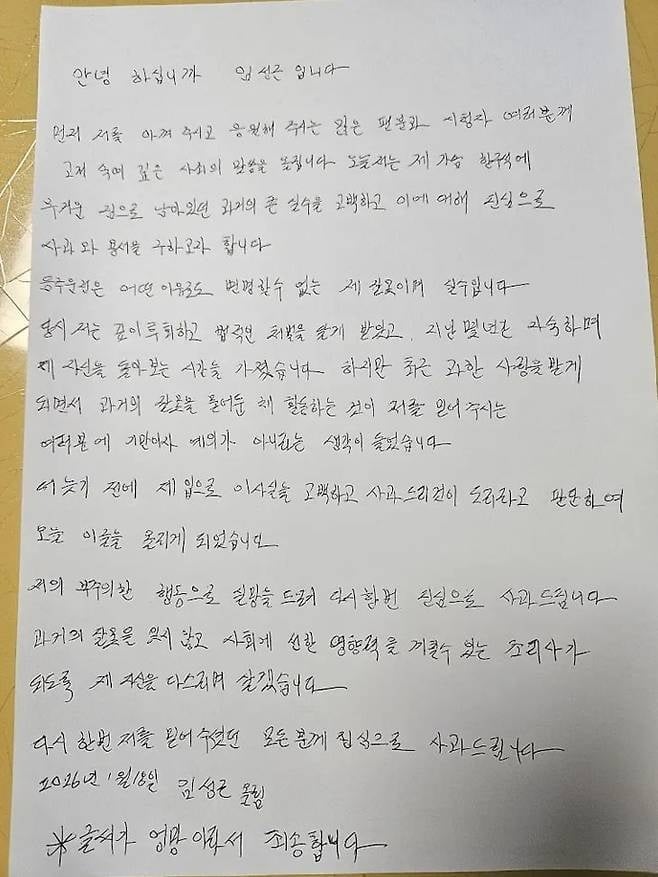 안녕 하십니까 임성근 입니다
먼저 저를 아껴 주시고 응원해 주시는 많은 팬분과 시청자 여러분께
고개 숙여 깊은 사죄의 말씀을 올립니다 오늘 저는 제 가슴 한구석에
무거운 짐으로 남아있던 과거의 큰 실수를 고백하고 이에 대해 진심으로
사과와 용서를 구하고자 합니다
음주운전은 어떤 이유로도 변명할수 없는 제 잘못이며 실수입니다
당시 저는 깊이 후회하고 법적인 처벌을 달게 받았고, 지난 몇년간 자숙하며
제 자신을 돌아보는 시간을 가졌습니다 하지만 최근 과한 사랑을 받게
되면서 과거의 잘못을 묻어둔 채 활동하는 것이 저를 믿어 주시는
여러분에 기만이자 예의가 아니라는 생각이 들었습니다
더 늦기 전에 제 입으로 이사실을 고백하고 사과드리는것이 도리라고 판단하여
오늘 이글을 올리게 되었습니다
저의 부주의한 행동으로 실망을 드려 다시한번 진심으로 사과드립니다
과거의 잘못을 잊지 않고 사회에 선한 영향력을 끼칠수 있는 조리사가
되도록 제 자신을 다스리며 살겠습니다
다시 한번 저를 믿어 주셨던 모든 분께 진심으로 사과드립니다
2026년 1월 18일 임성근 올림
※ 글씨가 엉망 이라서 죄송합니다